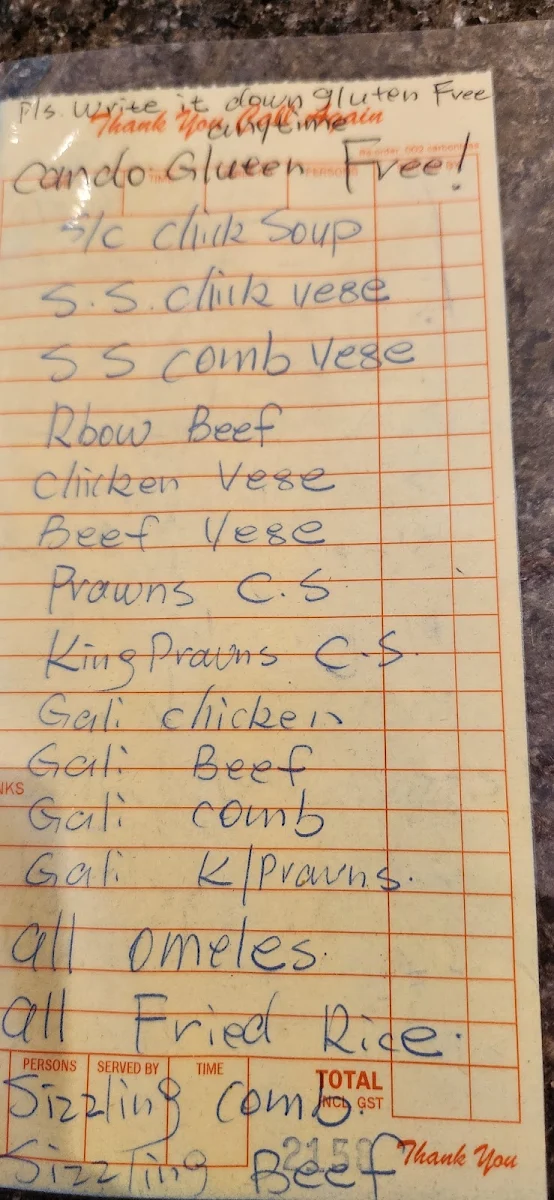 Pls. Write it down gluten Free
Thank You Call Again
anytime
Cando Gluten Free!
S/c Chick Soup
S.S. chick vege
S S comb Vege
Rbow Beef
Chicken Vege
Beef Vege
Prawns C.S
King Prawns C.S.
Gali chicken
Gali Beef
NKS
Gali comb
Gali K/Prawns.
all omeles.
all Fried Rice.
PERSONS SERVED BY TIME TOTAL
Sizzling Comb.
INCL GST
Sizzling Beef
Thank You